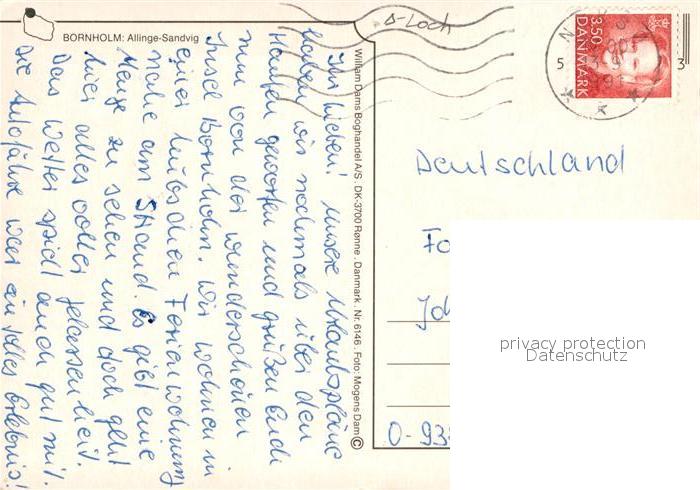 BORNHOLM: Allinge-Sandvig
Δ-Loch
3.50
DANMARK
5
3
William Dams Boghandel A/S . DK-3700 Rønne . Danmark . Nr. 6146 . Foto: Mogens Dam ©
Ihr Lieben! Unsere Urlaubspläne
haben wir nochmals über den
Haufen geworfen und grüßen Euch
nun von der wunderschönen
Insel Bornholm. Wir wohnen in
einer hübschen Ferienwohnung
nahe am Strand. Es gibt eine
Menge zu sehen und doch geht
hier alles voller Gelassenheit.
Das Wetter spielt auch gut mit.
Die Autofähre war ein tolles Erlebnis!
Deutschland
Fo
Joh
O-93
privacy protection
Datenschutz